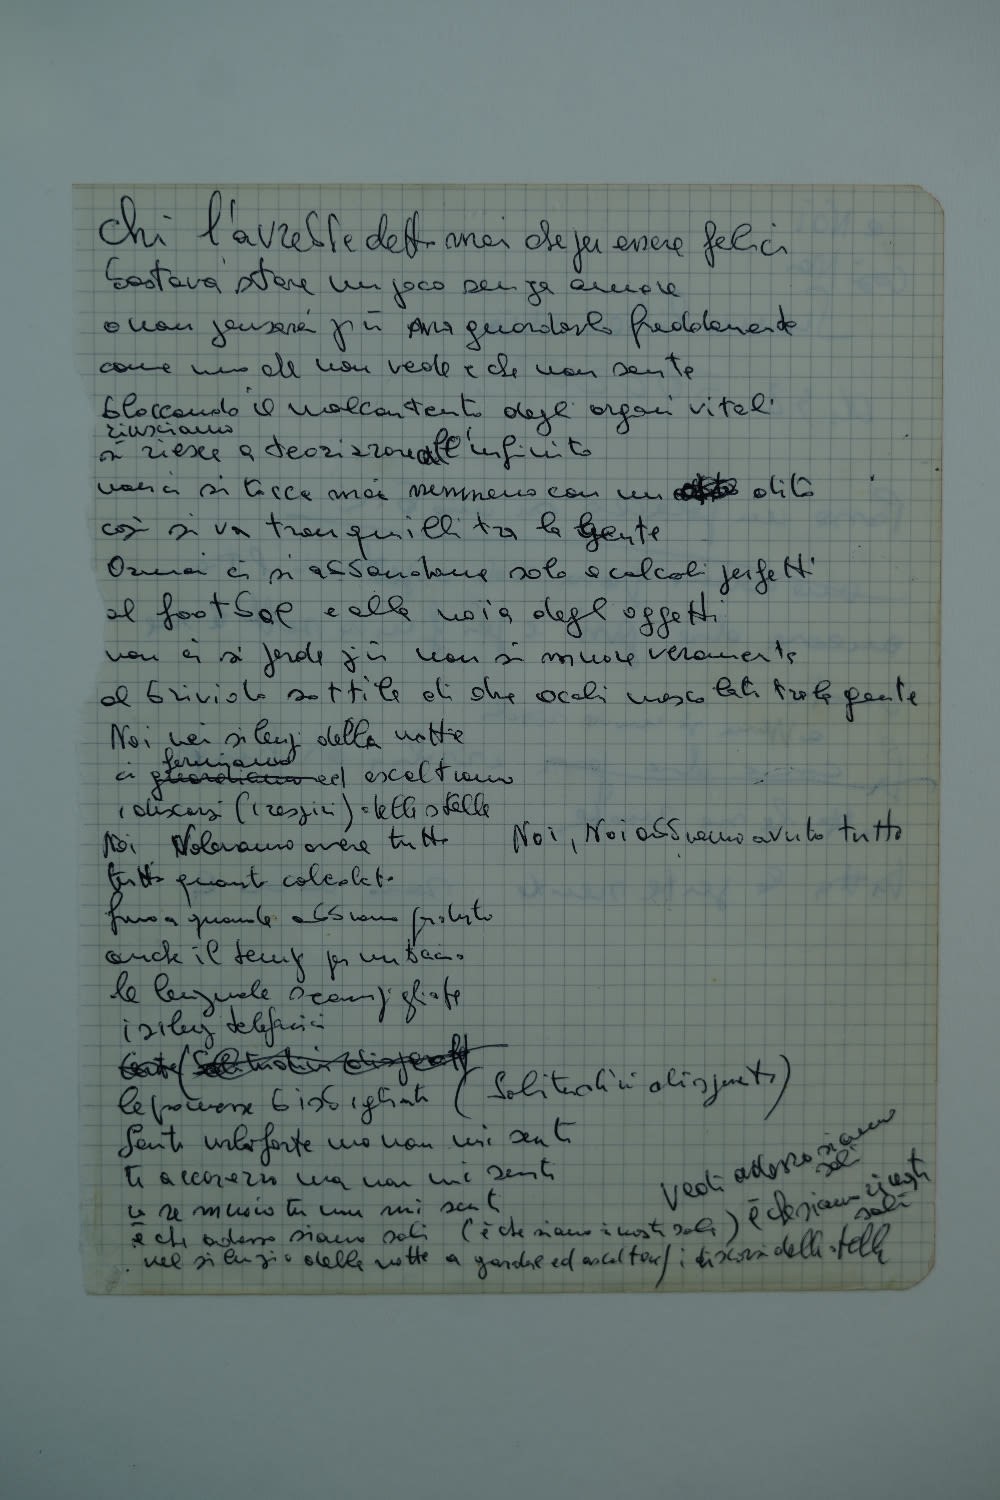 Chi l'avrebbe detto mai che per essere felici
bastava stare un poco senza amore
o non pensare più ma guardarlo freddamente
come uno che non vede e che non sente
bloccando il malcontento degli organi vitali
riusciamo
si riesce a teorizzare all'infinito
non ci si tocca mai nemmeno con un dito
così si va tranquilli tra la gente
Ormai ci si abbandona solo a calcoli perfetti
al footbal e alla noia degl oggetti
non ci si perde più non si muore veramente
al brivido sottile di due occhi mescolati tra la gente
Noi nei silenzi della notte
fermiamo
ci guardiamo ed ascoltiamo
i discorsi (i respiri) delle stelle
Noi Volevamo avere tutto Noi, Noi abbiamo avuto tutto
tutto quanto calcolato
fino a quando abbiamo perduto
anche il tempo per un bacio
le lenzuola scompigliate
i silenzi telefonici
le promesse bisbigliate (Solitudini disperate)
Senti urlo forte ma non mi senti
ti accarezzo ma non mi senti
e se muoio tu non mi senti
è che adesso siamo soli (è che siamo rimasti soli)
Vedi adesso siamo soli
è che siamo rimasti soli
nel silenzio della notte a guardare ed ascoltare i discorsi delle stelle